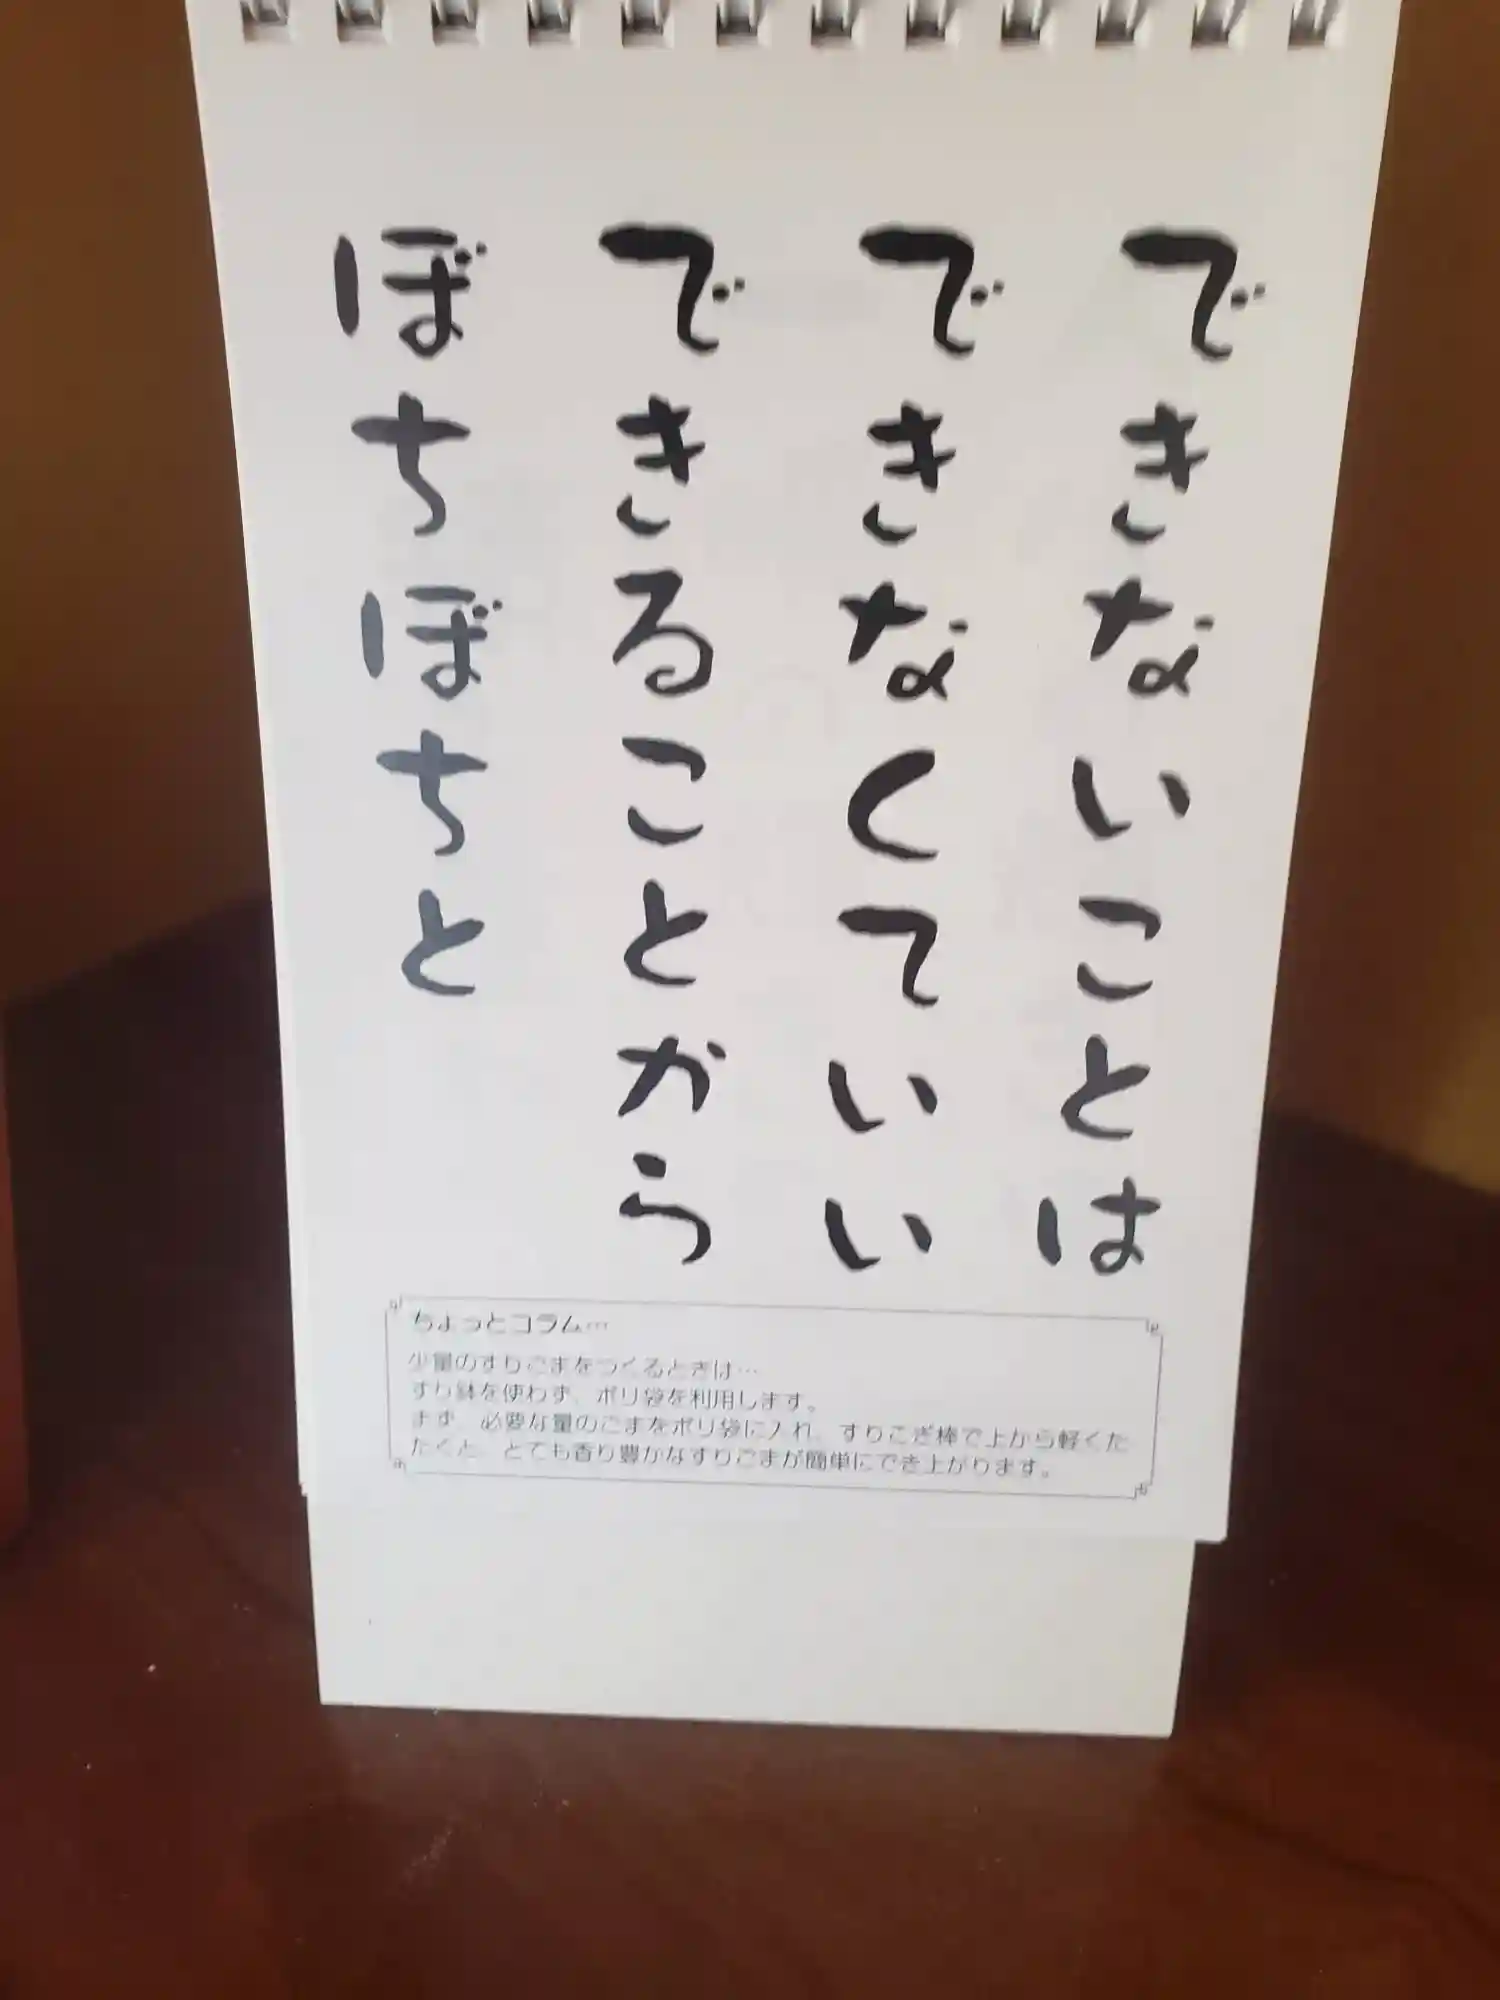 できないことは
できなくていい
できることから
ぼちぼちと
ちょっとコラム…
少量のすりごまをつくるときは…
すり鉢を使わず、ポリ袋を利用します。
まず、必要な量のごまをポリ袋に入れ、すりこぎ棒で上から軽くた
たくと、とても香り豊かなすりごまが簡単にでき上がります。